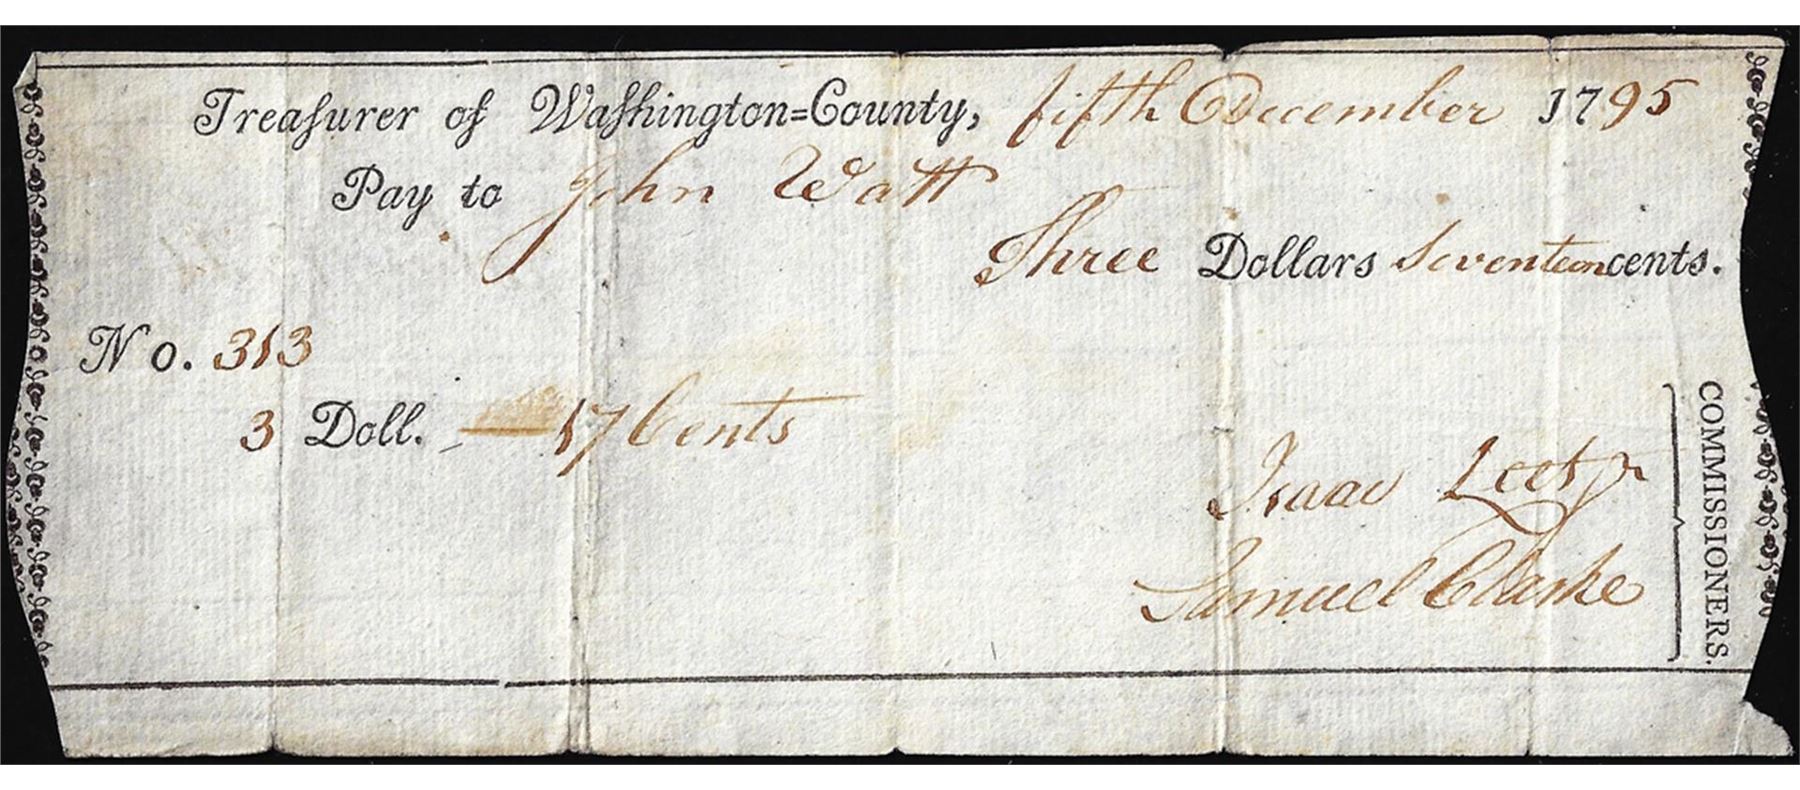 Treaſurer of Waſhington=County, fifth December 1795
Pay to John Watt
Three Dollars Seventeen cents.
No. 313
3 Doll. — 17 Cents
Isaac Leet Jr
Samuel Clarke
COMMISSIONERS.